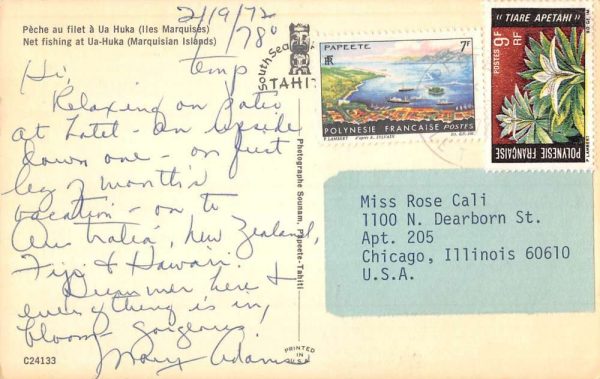 2/19/72
78°
temp
Pêche au filet à Ua Huka (Iles Marquises)
Net fishing at Ua-Huka (Marquisian Islands)
Hi,
Relaxing on patio
at hotel - an upside
down one - on first
leg of month's
vacation - on to
Australia, New Zealand,
Fiji & Hawaii.
Summer here &
everything is in
bloom - gorgeous
Mary Adams
C24133
Photographe Sounam, Papeete-Tahiti
PRINTED IN
U.S.A.
South Sea
TAHITI
PAPEETE
7F
RF
POLYNESIE FRANCAISE POSTES
P. LAMBERT
"TIARE APETAHI"
POSTES 9F RF
POLYNESIE FRANÇAISE
P. LAMBERT
Miss Rose Cali
1100 N. Dearborn St.
Apt. 205
Chicago, Illinois 60610
U.S.A.